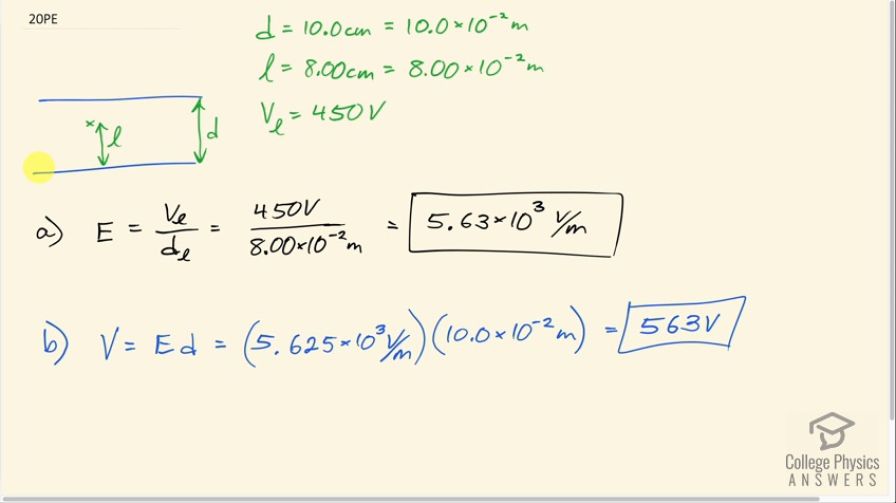 20PE
d = 10.0cm = 10.0×10⁻²m
l = 8.00cm = 8.00×10⁻²m
V_l = 450V
× l d
a) E = V_l / d_l = 450V / 8.00×10⁻²m = 5.63×10³ V/m
b) V = Ed = (5.625×10³ V/m)(10.0×10⁻²m) = 563V
College Physics
ANSWERS